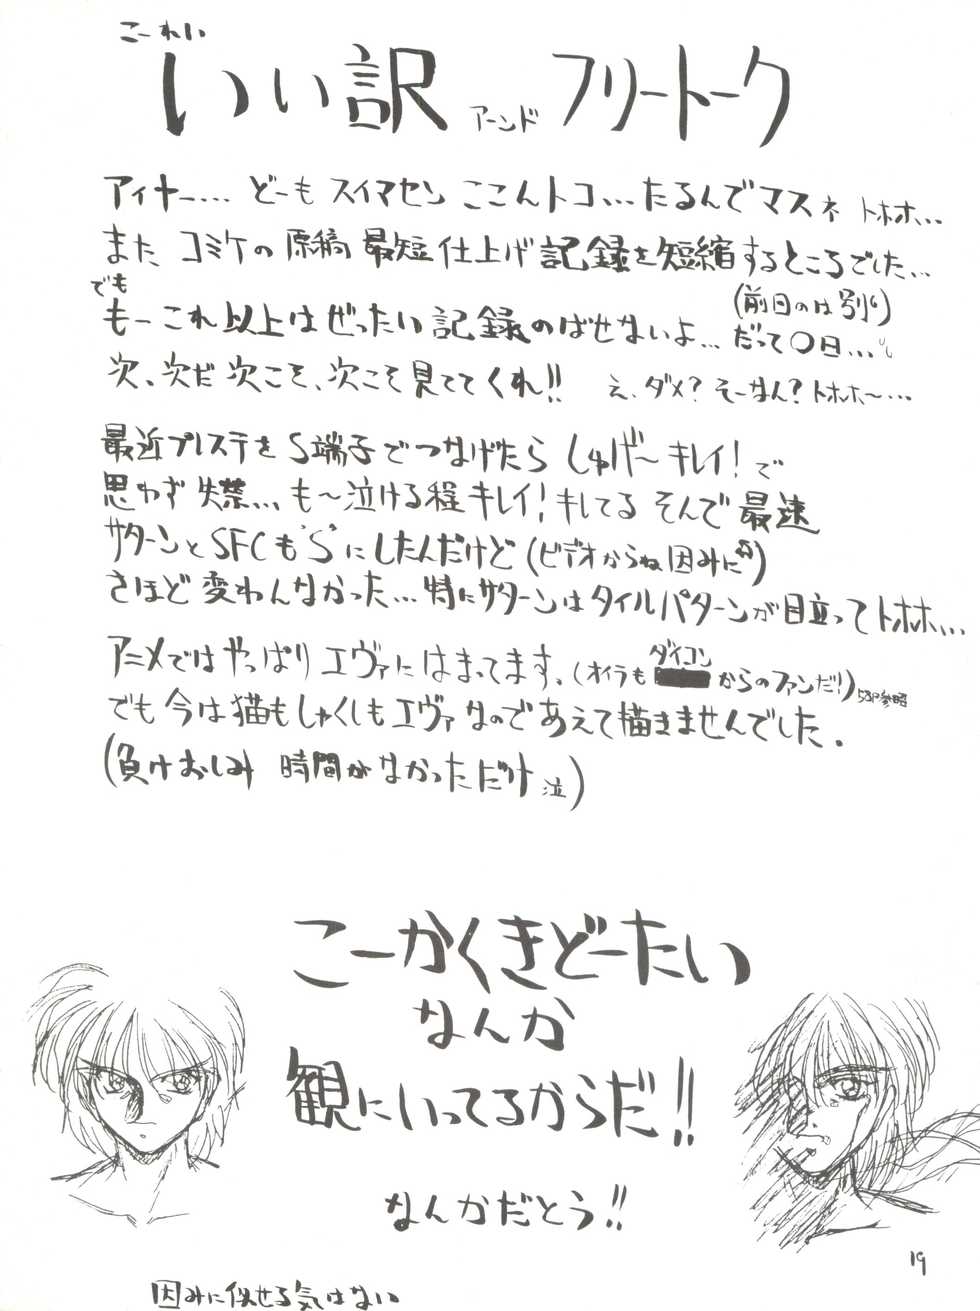 こーれい
いい訳 アーンド フリートーク
アイヤー… どーも スイマセン ここんトコ… たるんでマスネ トホホ…
また コミケの 原稿 最短 仕上げ 記録を 短縮するところでした…
でも (前日のは別)
もーこれ以上はぜったい記録のばせないよ… だって〇日…
次、次だ 次こそ、次こそ見ててくれ!! え、ダメ? そーなん? トホホ〜…
最近プレステをS端子でつなげたら しゅげ〜キレイ!で
思わず失禁… も〜泣ける程キレイ!キレてる そんで最速
サターンとSFCも"S"にしたんだけど (ビデオからね因みに)
さほど変わんなかった… 特にサターンはタイルパターンが目立ってトホホ…
アニメではやっぱりエヴァにはまってます。(オイラもダイコンからのファンだ!) 53P参照
でも今は猫もしゃくしもエヴァなのであえて描きませんでした。
(負けおしみ 時間がなかっただけ 泣)
こーかくきどーたい
なんか
観にいってるからだ!!
なんかだとう!!
因みに似せる気はない
19